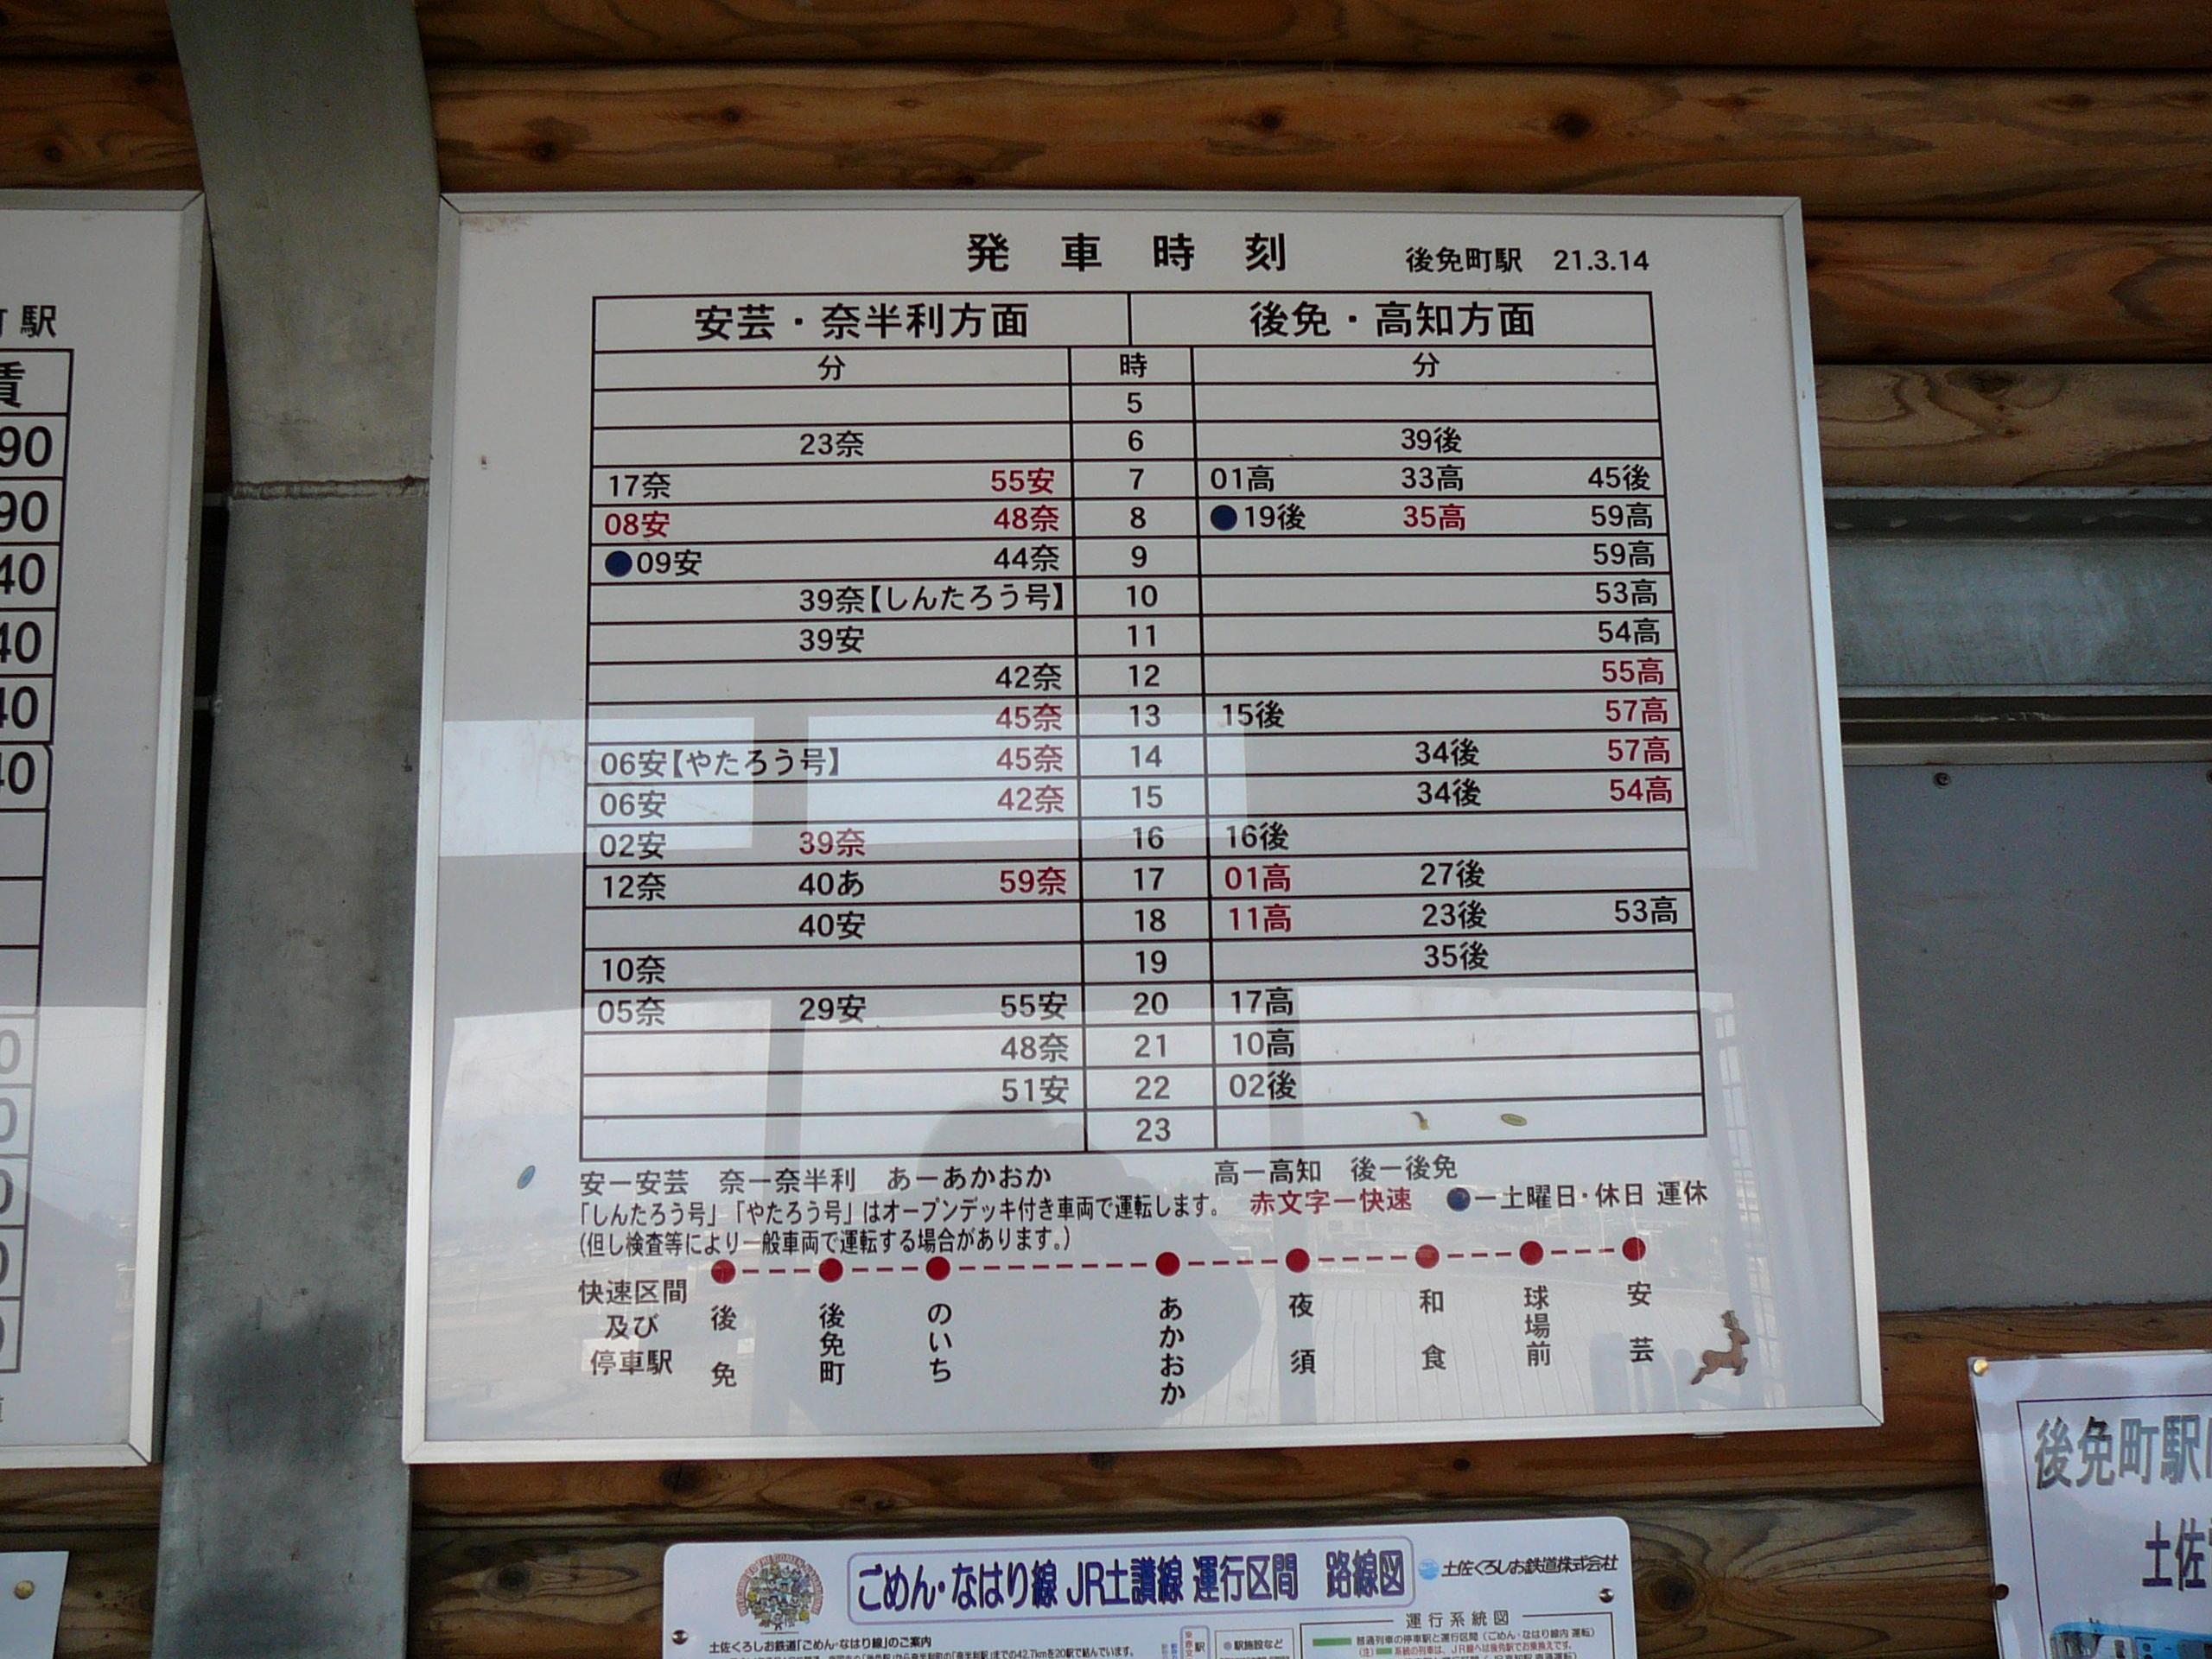 駅
賃
90
90
40
40
40
40
発車時刻 後免町駅 21.3.14
安芸・奈半利方面 後免・高知方面
分 時 分
5
23奈 6 39後
17奈 55安 7 01高 33高 45後
08安 48奈 8 ●19後 35高 59高
●09安 44奈 9 59高
39奈【しんたろう号】 10 53高
39安 11 54高
42奈 12 55高
45奈 13 15後 57高
06安【やたろう号】 45奈 14 34後 57高
06安 42奈 15 34後 54高
02安 39奈 16 16後
12奈 40あ 59奈 17 01高 27後
40安 18 11高 23後 53高
10奈 19 35後
05奈 29安 55安 20 17高
48奈 21 10高
51安 22 02後
23
安ー安芸 奈ー奈半利 あーあかおか 高ー高知 後ー後免
「しんたろう号」「やたろう号」はオープンデッキ付き車両で運転します。 赤文字ー快速 ●ー土曜日・休日 運休
(但し検査等により一般車両で運転する場合があります。)
快速区間
及び
停車駅
後免
後免町
のいち
あかおか
夜須
和食
球場前
安芸
ごめん・なはり線 JR土讃線 運行区間 路線図 土佐くろしお鉄道株式会社
運行系統図
土佐くろしお鉄道「ごめん・なはり線」のご案内
駅 駅施設など
普通列車の停車駅と運行区間(ごめん・なはり線内 運転)
後免町駅
土佐